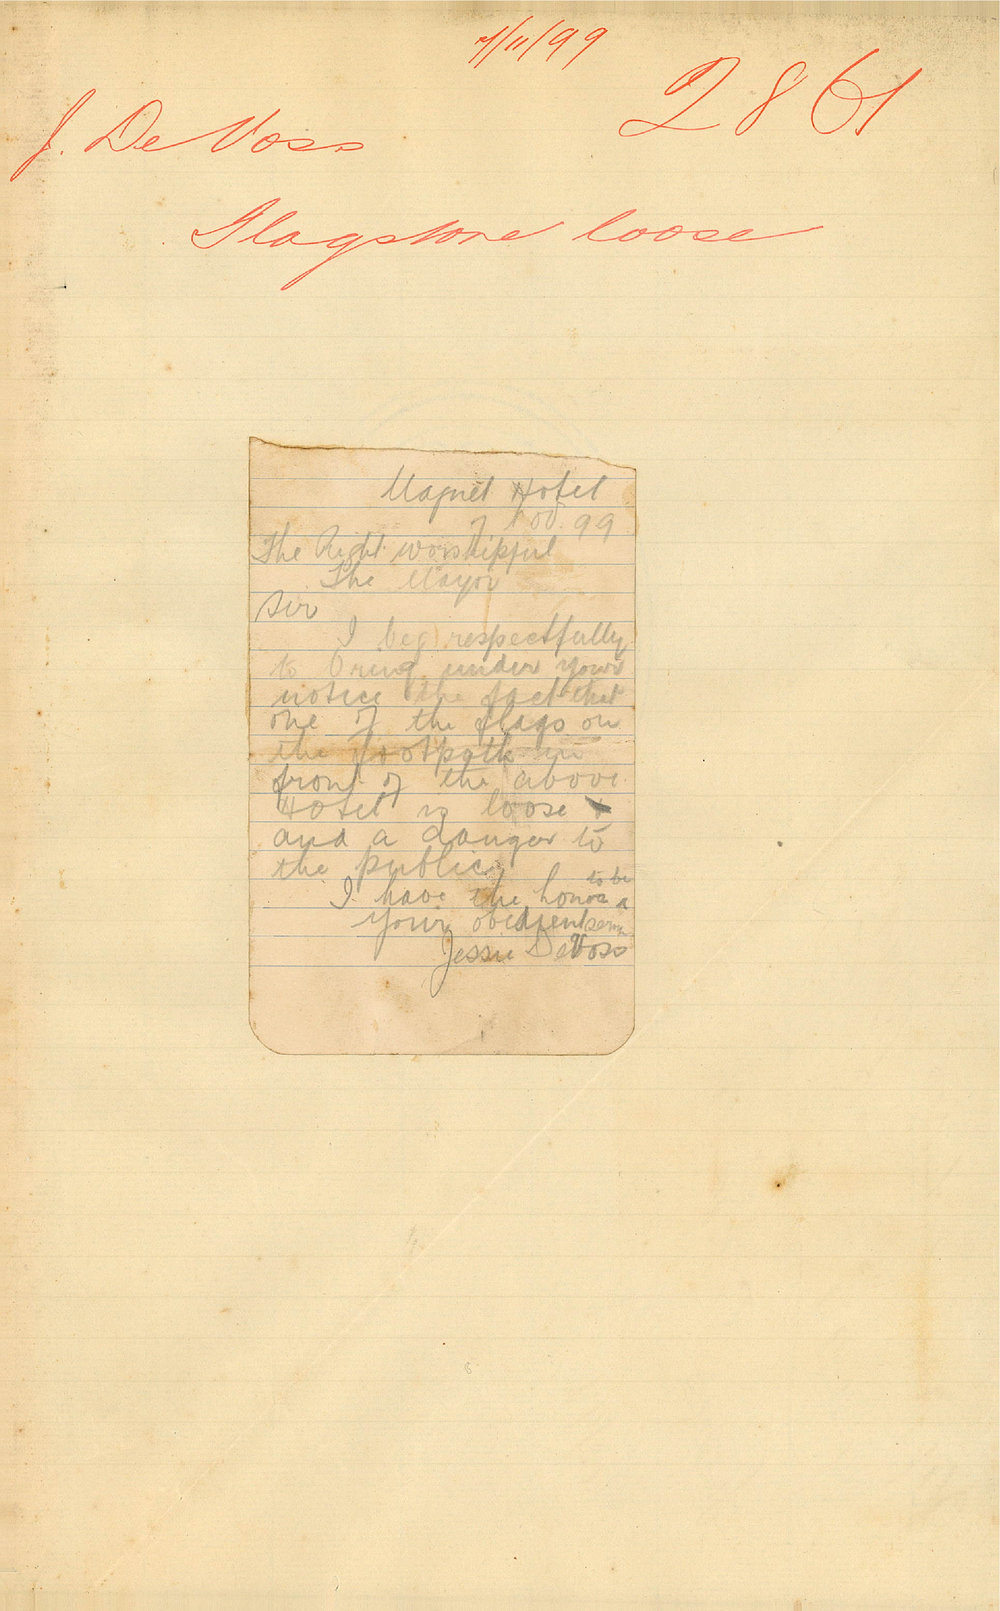 7/11/99
2861
J. De Voss
Flagstone loose
Magnet Hotel
7 Nov. 99
The Right worshipful
The Mayor
Sir
I beg respectfully
to bring under your
notice the fact that
one of the flags on
the footpath in
front of the above
Hotel is loose
and a danger to
the public
I have the honor to be
Your obedient
Jessie DeVoss